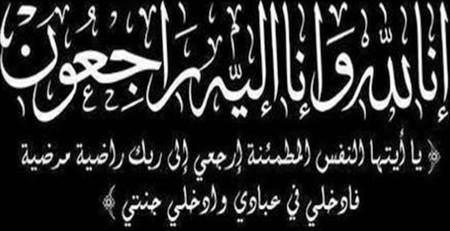 إنا لله وإنا إليه راجعون
﴿ يا أيتها النفس المطمئنة إرجعي إلى ربك راضية مرضية
فادخلي في عبادي وادخلي جنتي ﴾